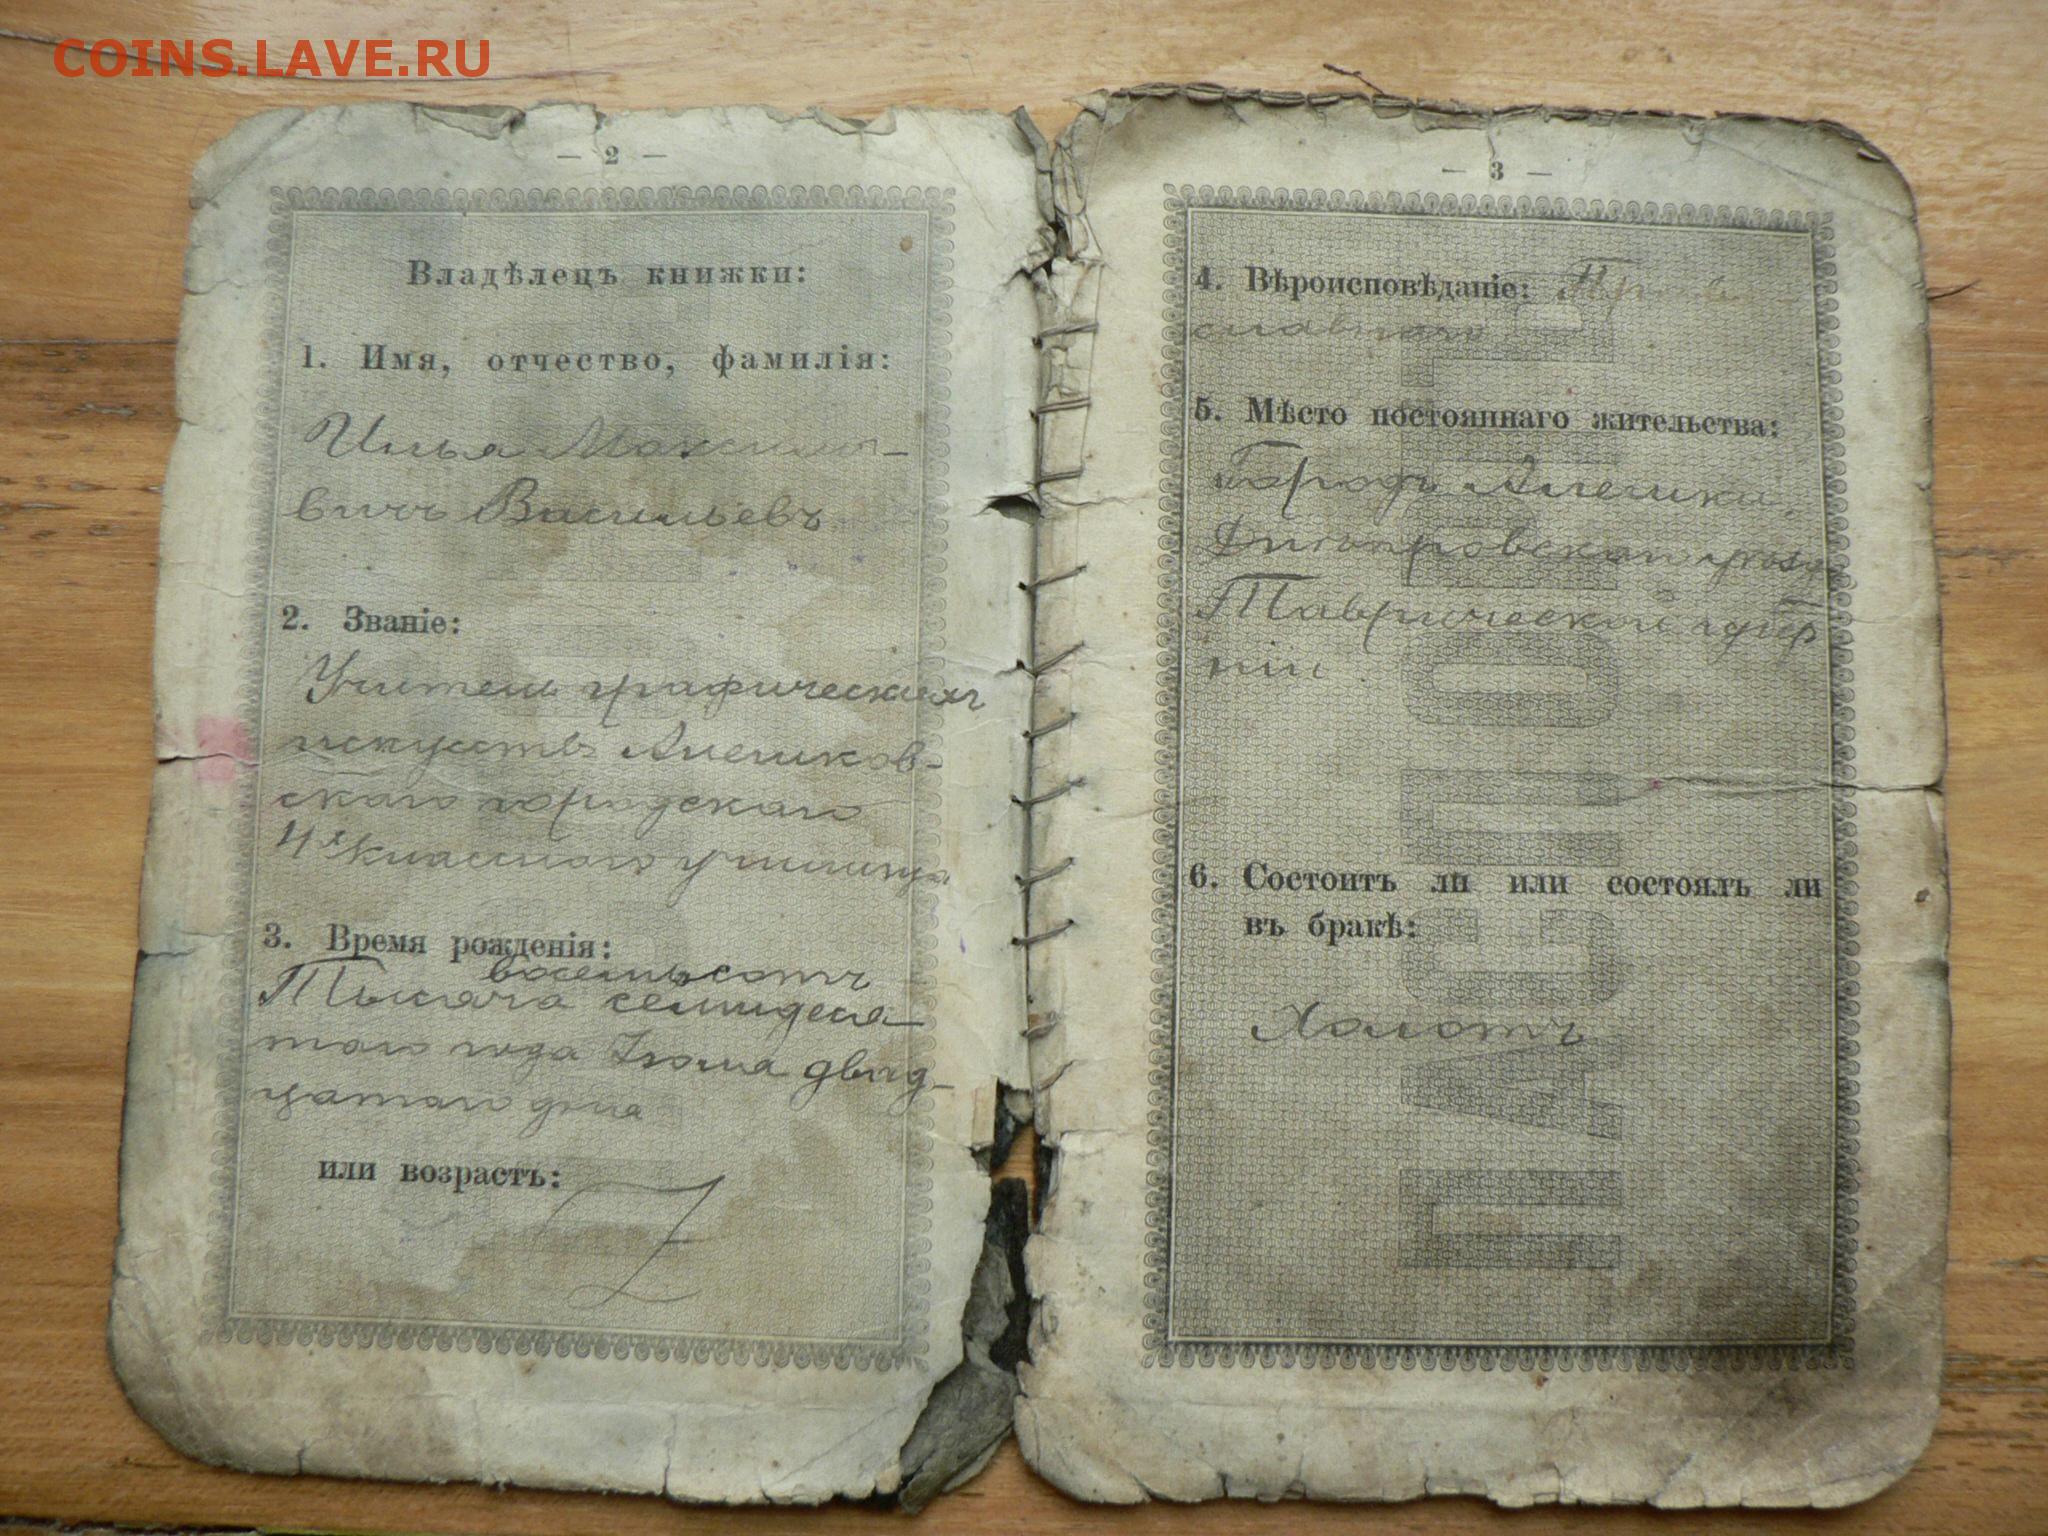 COINS.LAVE.RU
— 2 —
Владѣлецъ книжки:
1. Имя, отчество, фамилія:
Илья Максимо-
вичъ Васильевъ
2. Званіе:
Учитель графическихъ
искусствъ Алешков-
скаго городскаго
4х класснаго училища
3. Время рожденія:
восемьсотъ
Тысяча семидеся-
таго года Іюля двад-
цатаго дня
или возрастъ:
— 3 —
4. Вѣроисповѣданіе: Право
славнаго
5. Мѣсто постояннаго жительства:
Городъ Алешки,
Днѣпровскаго уѣзда
Таврической губер
ніи.
6. Состоитъ ли или состоялъ ли
въ бракѣ:
Холостъ
ПАСПОРТ